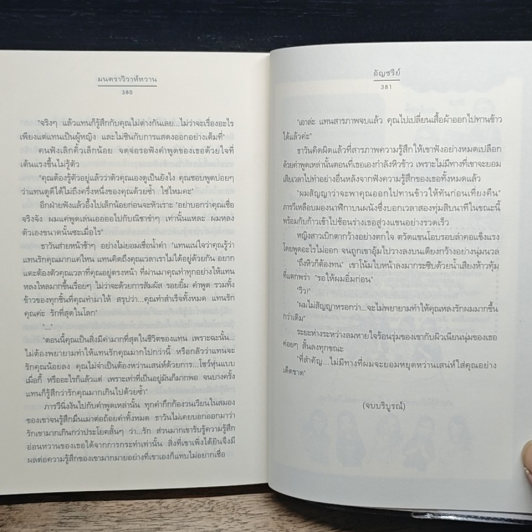 มนตราวิวาห์หวาน
380
"จริงๆ แล้วแทนก็รู้สึกกับคุณไม่ต่างกันเลย...ไม่ว่าจะเรื่องอะไร
เพียงแต่แทนเป็นผู้หญิง และไม่ชินกับการแสดงออกอย่างเต็มที่"
คนฟังเลิกคิ้วเล็กน้อย จดจ่อรอฟังคำพูดของเธอด้วยใจที่
เต้นแรงขึ้นไม่รู้ตัว
"คุณต้องรู้ตัวอยู่แล้วว่าตัวคุณเองดูเป็นยังไง คุณชอบพูดบ่อยๆ
ว่าแทนดูดีได้ไม่ถึงครึ่งหนึ่งของคุณด้วยซ้ำ ใช่ไหมคะ"
อีกฝ่ายฟังแล้วอึ้งไปเล็กน้อยก่อนจะหัวเราะ "อย่าบอกว่าคุณเชื่อ
จริงจัง ผมแค่พูดเล่นเออออไปกับณิชาช่าๆ เท่านั้นแหละ ผมหลง
ตัวเองขนาดนั้นซะเมื่อไร"
ธาวินส่ายหน้าช้าๆ อย่างไม่ยอมเชื่อน้ำคำ "แทนแน่ใจว่าคุณรู้ว่า
แทนรักคุณมากแค่ไหน แทนคิดถึงคุณเวลาเราไม่ได้อยู่ด้วยกัน อยาก
แตะต้องตัวคุณเวลาที่คุณอยู่ตรงหน้า ที่ผ่านมาคุณทำทุกอย่างให้แทน
หลงใหลมากขึ้นเรื่อยๆ ไม่ว่าจะด้วยการสัมผัส รอยยิ้ม คำพูด รวมทั้ง
ข้าวของทุกชิ้นที่คุณทำมาให้ สรุปว่า...คุณทำสำเร็จทั้งหมด แทนรัก
คุณค่ะ รักที่สุดในโลก"
"..."
"ตอนนี้คุณเป็นสิ่งมีค่ามากที่สุดในชีวิตของแทน เพราะฉะนั้น...
ไม่ต้องพยายามทำให้แทนรักคุณมากไปกว่านี้ หรือกลัวว่าแทนจะ
รักคุณน้อยลง คุณไม่จำเป็นต้องหว่านเสน่ห์ด้วยการ...โชว์หุ่นแบบ
เมื่อกี้ หรืออะไรก็แล้วแต่ เพราะเท่าที่เป็นอยู่มันก็มากพอ จนบางครั้ง
แทนก็รู้สึกว่ารักคุณมากเกินไปด้วยซ้ำ"
ภารวีนิ่งงันไปกับคำพูดเหล่านั้น ทุกคำก็กึกก้องวนเวียนในสมอง
ของเขาจนรู้สึกมึนเมาต่อถ้อยคำทั้งหมด ธาวินไม่เคยบอกออกมาว่า
รักเขามากเกินกว่าประโยคสั้นๆ ว่า...รัก ส่วนมากเขารับรู้ความรู้สึก
อ่อนหวานของเธอได้จากการกระทำเท่านั้น สิ่งที่เขาเพิ่งได้ยินจึงมี
ผลต่อความรู้สึกของเขามากมายอย่างที่เขาเองก็แทบไม่อยากเชื่อ
อัญชรีย์
381
"เอาล่ะ แทนสารภาพจบแล้ว คุณไปเปลี่ยนเสื้อผ้าออกไปทานข้าว
ได้แล้วค่ะ"
ธาวินคิดผิดแล้วที่สารภาพความรู้สึกให้เขาฟังอย่างหมดเปลือก
ด้วยคำพูดเหล่านั้นตอนที่เธอเองกำลังหิวข้าว เพราะไม่มีทางที่เขาจะยอม
เสียเวลาไปทำอย่างอื่นหลังจากฟังความรู้สึกของเธอทั้งหมดแล้ว
"ผมสัญญาว่าจะพาคุณออกไปทานข้าวให้ทันก่อนเที่ยงคืน"
ภารวีเหลือบมองนาฬิกาบนผนังซึ่งบอกเวลาสองทุ่มสิบนาทีในขณะนี้
พร้อมกับก้าวเข้าไปช้อนร่างเธอสู่วงแขนอย่างรวดเร็ว
หญิงสาวเบิกตากว้างอย่างตกใจ ตวัดแขนโอบรอบลำคอแข็งแรง
โดยพูดอะไรไม่ออก จนถูกเขาอุ้มไปวางลงบนเตียงกว้างอย่างนุ่มนวล
"ถึงหิวก็ต้องทน" เขาโน้มใบหน้าลงมากระซิบด้วยน้ำเสียงห้าวทุ้ม
ที่แตกพร่า "รอให้ผมอิ่มก่อน"
"วี!"
"ผมไม่สัญญาหรอกว่า...จะไม่พยายามทำให้คุณหลงรักผมมากขึ้น
กว่าเดิม"
ระยะห่างระหว่างลมหายใจร้อนรุ่มของเขากับผิวเนียนนุ่มของเธอ
ค่อยๆ สั้นลงทุกขณะ
"ที่สำคัญ...ไม่มีทางที่ผมจะยอมหยุดหว่านเสน่ห์ใส่คุณอย่าง
เด็ดขาด"
(จบบริบูรณ์)